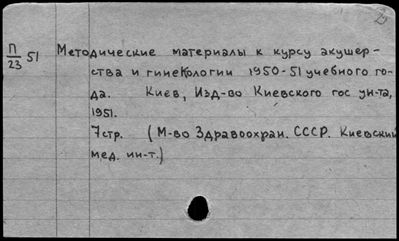 П/23 51 Методические материалы к курсу акушер-
ства и гинекологии 1950-51 учебного го-
да. Киев, Изд-во Киевского гос ун-та,
1951.
7 стр. (М-во Здравоохран. СССР. Киевский
мед. ин-т.)